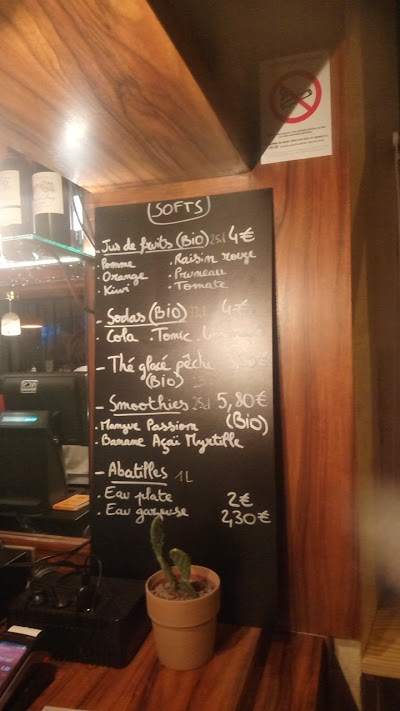 SOFTS
- Jus de fruits (Bio) 25cl 4€
. Pomme . Raisin rouge
. Orange . Pruneau
. Kiwi . Tomate
- Sodas (Bio) 4€
. Cola . Tonic .
- Thé glacé pêche
(Bio)
- Smoothies 25cl 5,80€
. Mangue Passion (Bio)
. Banane Açaï Myrtille
- Abatilles 1L
. Eau plate 2€
. Eau gazeuse 2,30€